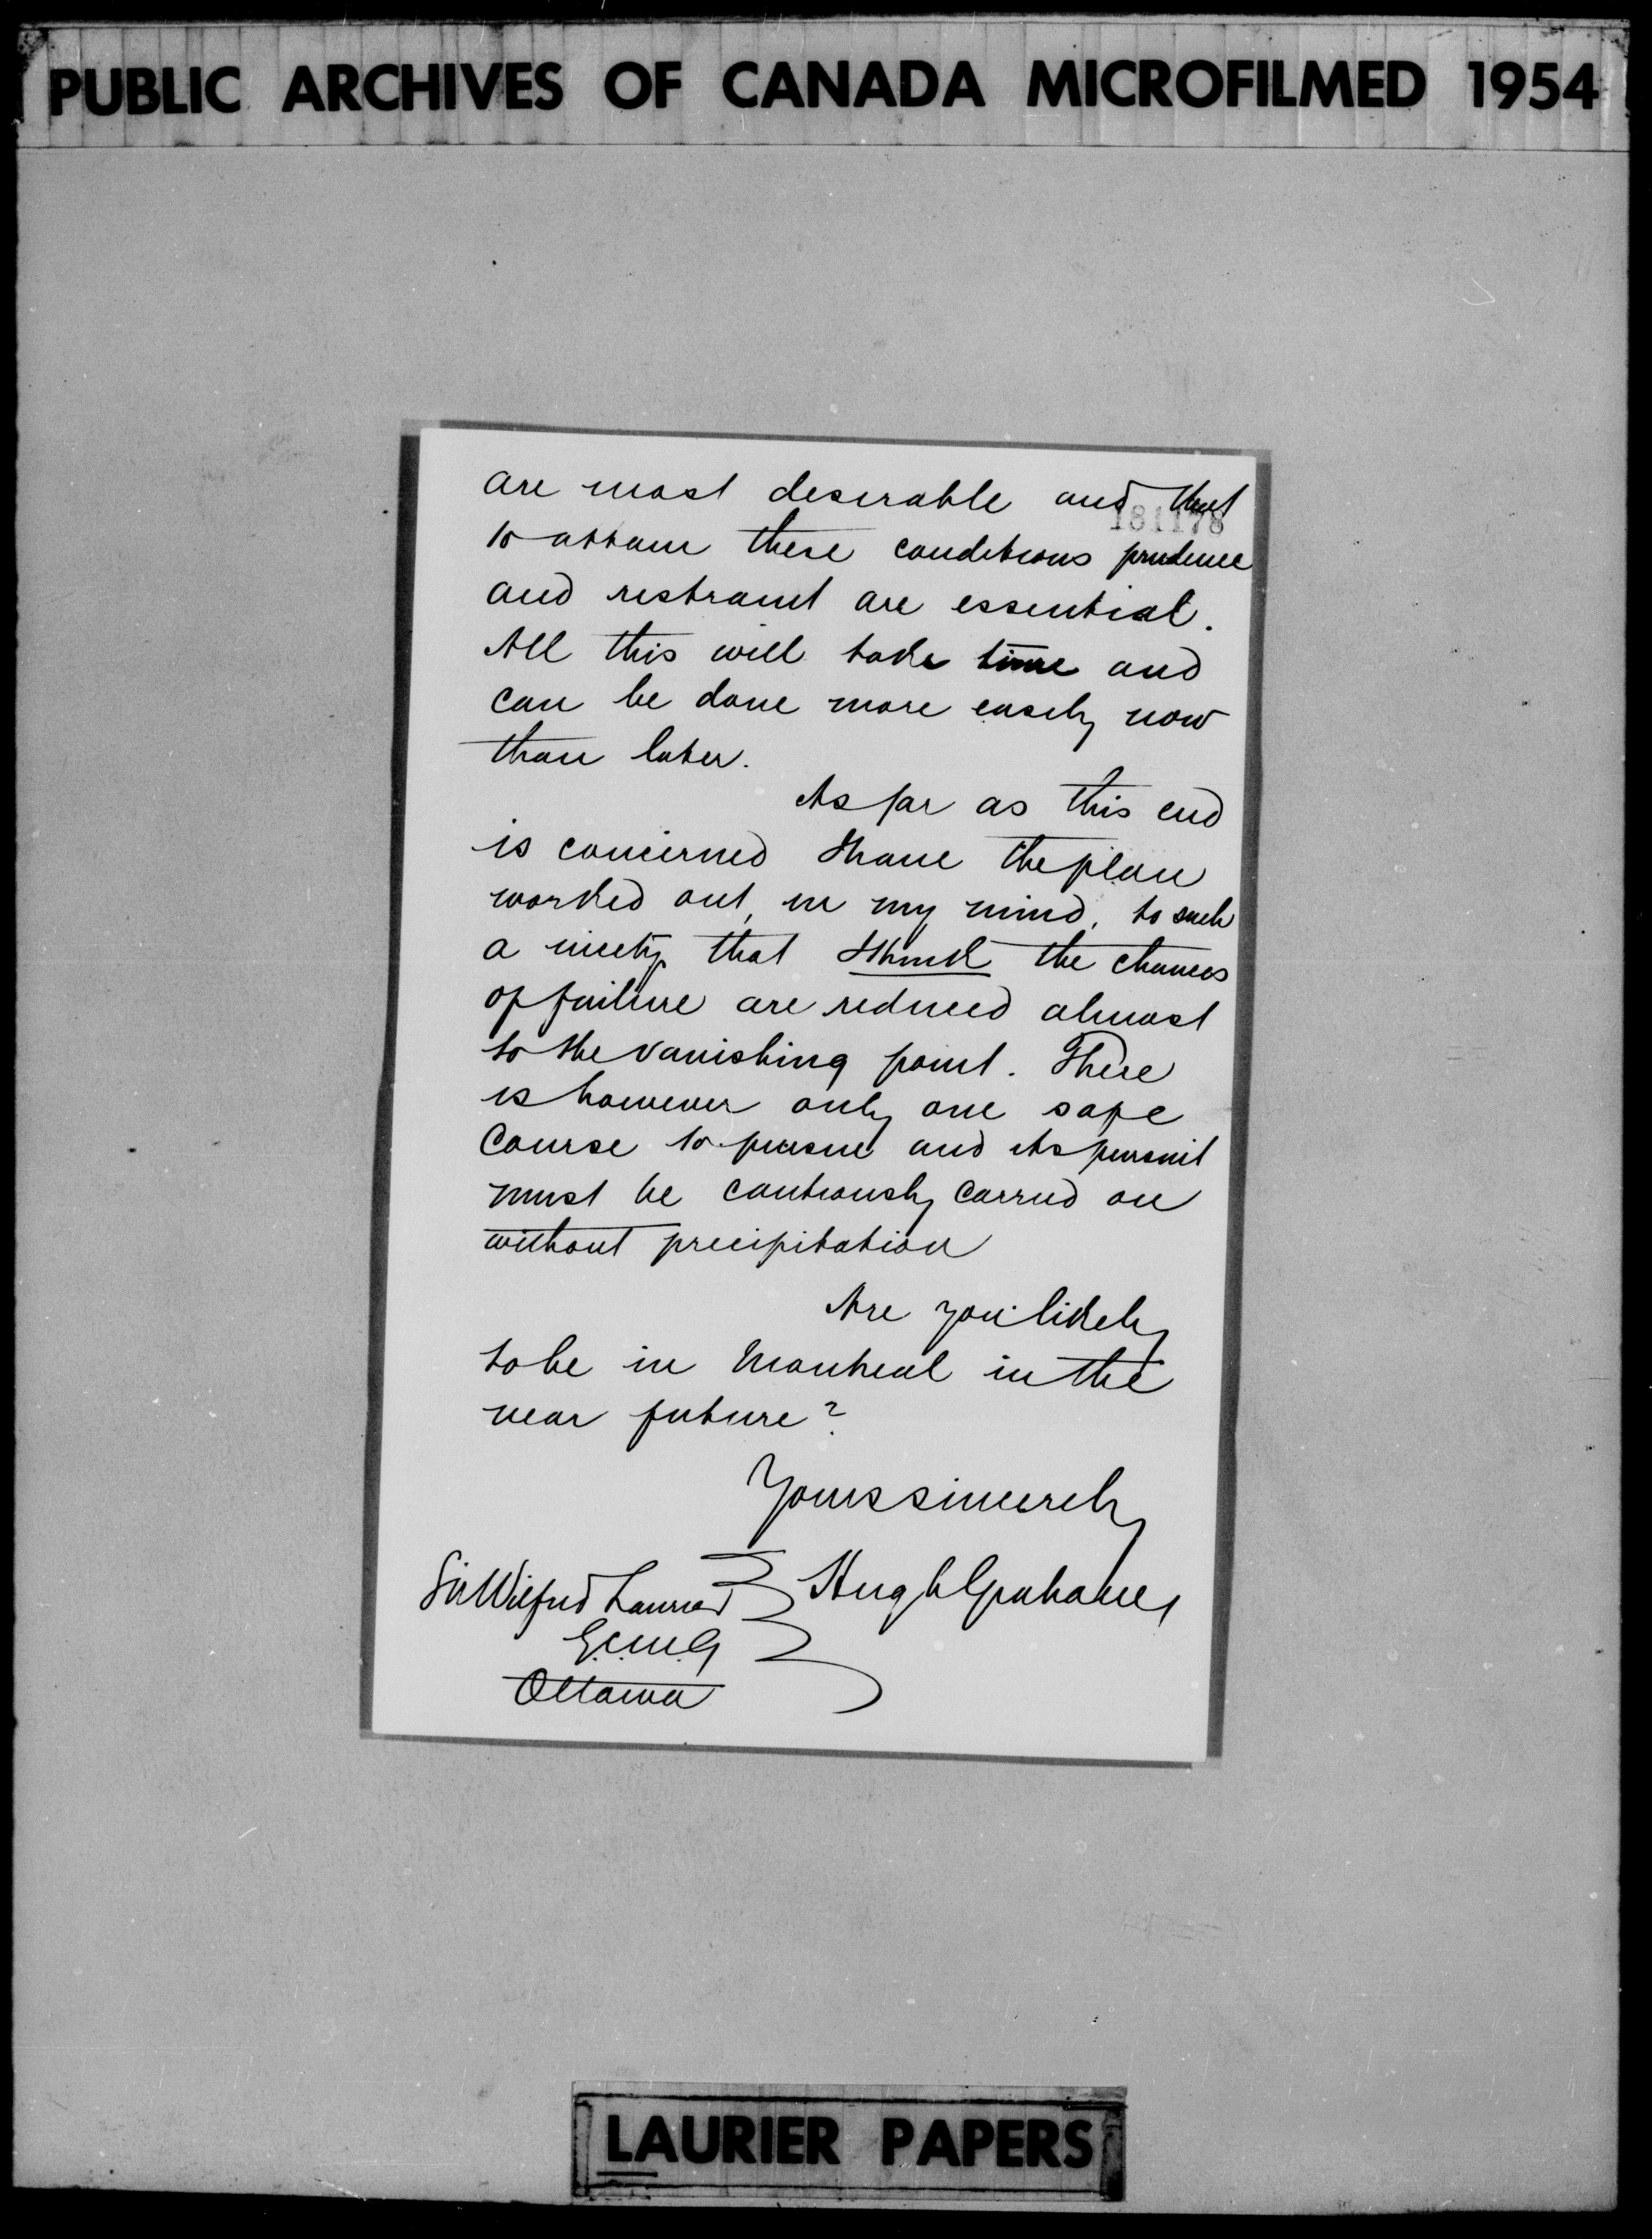 PUBLIC ARCHIVES OF CANADA MICROFILMED 1954
are most desirable and that
181178
to attain these conditions prudence
and restraint are essential.
All this will take time and
can be done more easily now
than later.
As far as this end
is concerned I have the plan
worked out, in my mind, to such
a nicety that I think the chances
of failure are reduced almost
to the vanishing point. There
is however only one safe
course to pursue and its pursuit
must be cautiously carried on
without precipitation
Are you likely
to be in Montreal in the
near future?
Yours sincerely
Hugh Graham
Sir Wilfrid Laurier
G.C.M.G
Ottawa
LAURIER PAPERS